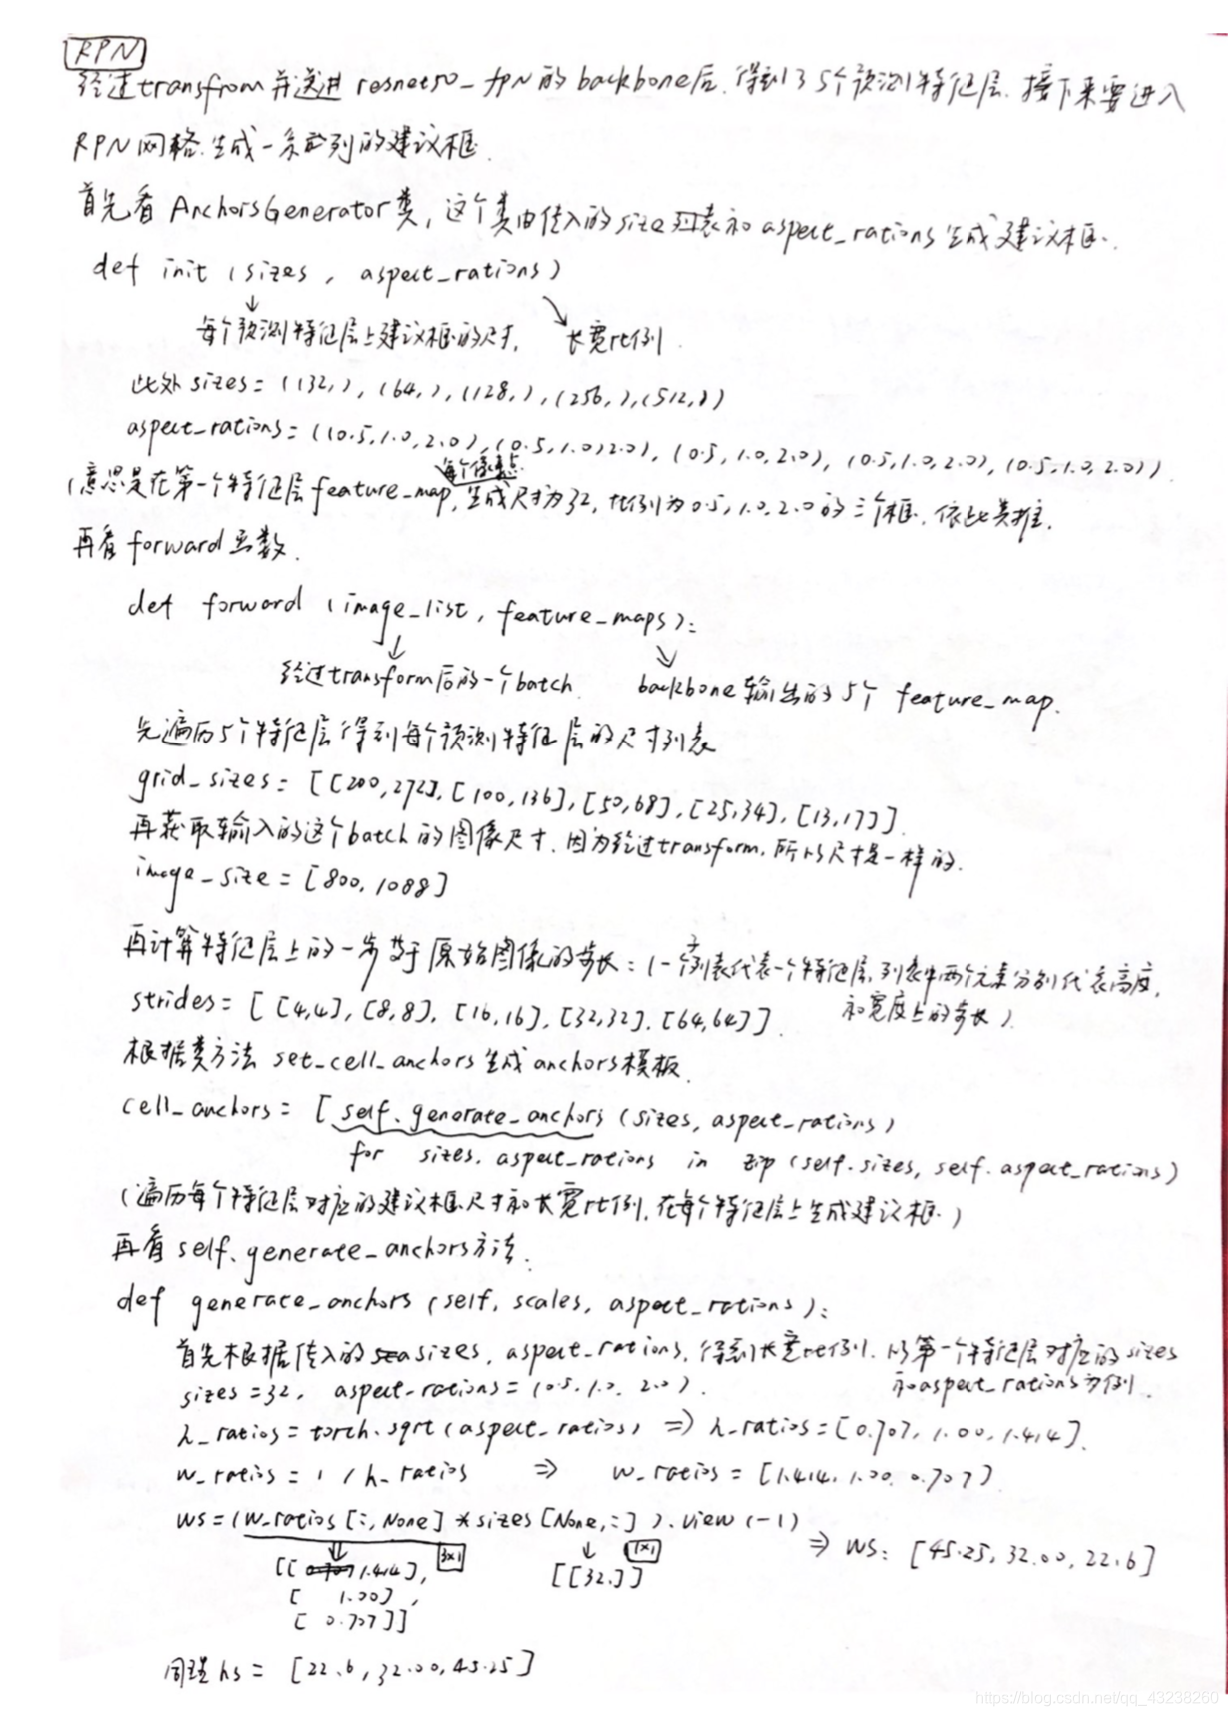 RPN
经过transfrom并送进resnet50_fpn的backbone后,得到了5个预测特征层.接下来要进入
RPN网格.生成一系列的建议框.
首先看AnchorsGenerator类,这个类由传入的size列表和aspect_rations生成建议框.
def init (sizes, aspect_rations)
每个预测特征层上建议框的尺寸, 长宽比例.
此处sizes=((32,),(64,),(128,),(256,),(512,))
aspect_rations=((0.5,1.0,2.0),(0.5,1.0,2.0),(0.5,1.0,2.0),(0.5,1.0,2.0),(0.5,1.0,2.0)).
每个像素点
(意思是在第一个特征层feature_map,生成尺寸为32,比例为0.5,1.0,2.0的三个框.依此类推.
再看forward函数.
def forward (image_list, feature_maps):
经过transform后的一个batch. backbone输出的5个feature_map.
先遍历5个特征层得到每个预测特征层的尺寸列表
grid_sizes=[[200,272],[100,136],[50,68],[25,34],[13,17]].
再获取输入的这个batch的图像尺寸.因为经过transform,所以尺寸是一样的.
image_size=[800,1088]
再计算特征层上的一步等于原始图像的步长:(一个子列表代表一个特征层,列表中两个元素分别代表高度,
和宽度上的步长).
strides=[[4,4],[8,8],[16,16],[32,32],[64,64]].
根据类方法set_cell_anchors生成anchors模板.
cell_anchors=[self.generate_anchors(sizes, aspect_rations)
for sizes, aspect_rations in zip(self.sizes, self.aspect_rations)
(遍历每个特征层对应的建议框尺寸和长宽比例,在每个特征层上生成建议框.)
再看self.generate_anchors方法.
def generate_anchors(self, scales, aspect_rations):
首先根据传入的sizes,aspect_rations,得到长宽比例.以第一个特征层对应的sizes
和aspect_rations为例.
sizes=32, aspect_rations=(0.5,1.0,2.0).
h_ratios=torch.sqrt(aspect_ratios) => h_ratios=[0.707,1.00,1.414].
w_ratios=1/h_ratios => w_ratios=[1.414,1.00,0.707]
ws=(w_ratios[:,None]*sizes[None,:]).view(-1) => ws:[45.25,32.00,22.6]
[[1.414], 3x1 [[32.]] 1x1
[1.00],
[0.707]]
同理hs=[22.6,32.00,45.25]
https://blog.csdn.net/qq_43238260